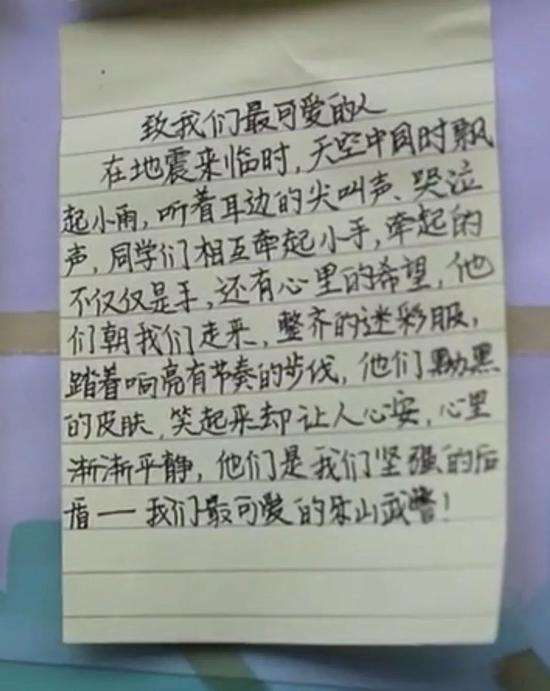 致我们最可爱的人
在地震来临时,天空中同时飘
起小雨,听着耳边的尖叫声、哭泣
声,同学们相互牵起小手,牵起的
不仅仅是手,还有心里的希望,他
们朝我们走来,整齐的迷彩服,
踏着响亮有节奏的步伐,他们黝黑
的皮肤,笑起来却让人心安,心里
渐渐平静,他们是我们坚强的后
盾——我们最可爱的乐山武警!